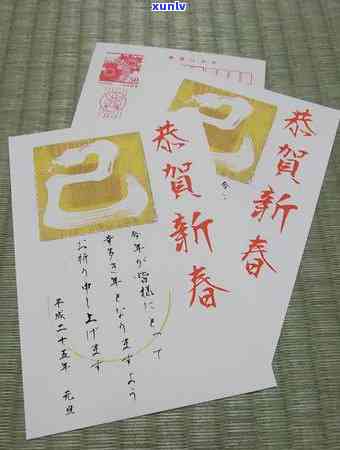 xunlv
.com
恭賀新春
今年が皆様にとって
幸多き年となりますよう
お祈り申し上げます
平成二十五年 元旦
巳
恭賀新春
巳
今
50